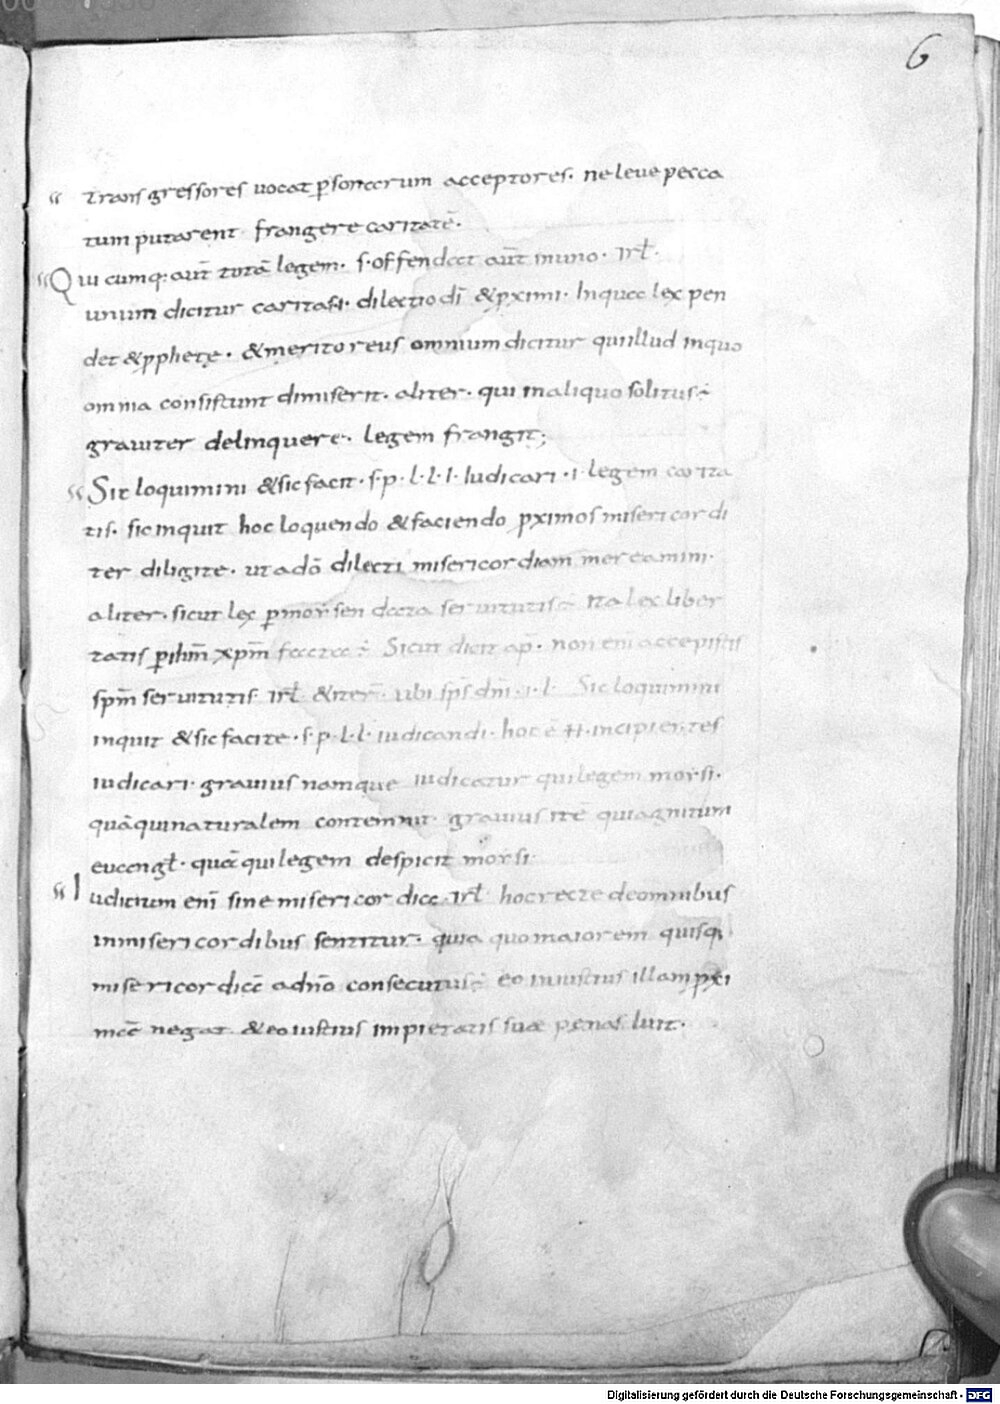 6
transgressores uocat p̱sonarum acceptores. neleue pecca
tum putarent frangere caritatē.
Qui cumq; aut̄ totā legem. s. offendat aut̄ inuno. rł.
unum dicitur caritas. dilectio dī &p̱ximi. Inqua lex pen
det &p̱phetę. &merito reus omnium dicitur quiillud inquo
omnia consistunt dimiserit. aliter. qui inaliquo solitus ÷
grauiter delinquere. legem frangit;
Sic loquimini &sic facit. s. p. l. l. I. Iudicari. i. legem carita
tis. sic inquit hoc loquendo &faciendo p̱ximos misericordi
ter diligite. ut adō dilecti misericordiam mereamini.
aliter. sicut lex p̱ morsen data seruitutis ÷ Ita lex liber
tatis p̱ ihm̄ xpm̄ facta ÷ Sicut dicit ap̄. non eni accepistis
spm̄ seruitutis. rł &iter̄. ubi sps̄ dnī. i. l. Sic loquimini
inquit &sic facite. s. p. l. l. iudicandi. hoc ē H. incipientes
iudicari. grauius namque iudicatur qui legem morsi.
quāqui naturalem contemnit. grauius itē qui agnitum
euangł. quā qui legem despicit morsi
Iuditium enī sine misericordia. rł hoc recte deomnibus
inmisericordibus sentitur. quia quo maiorem quisq;
misericordiā adnō consecutus ÷ eo iniustius illam p̱xi
mā negat &eo iustius impietatis suae penas luit.
Digitalisierung gefördert durch die Deutsche Forschungsgemeinschaft - DFG